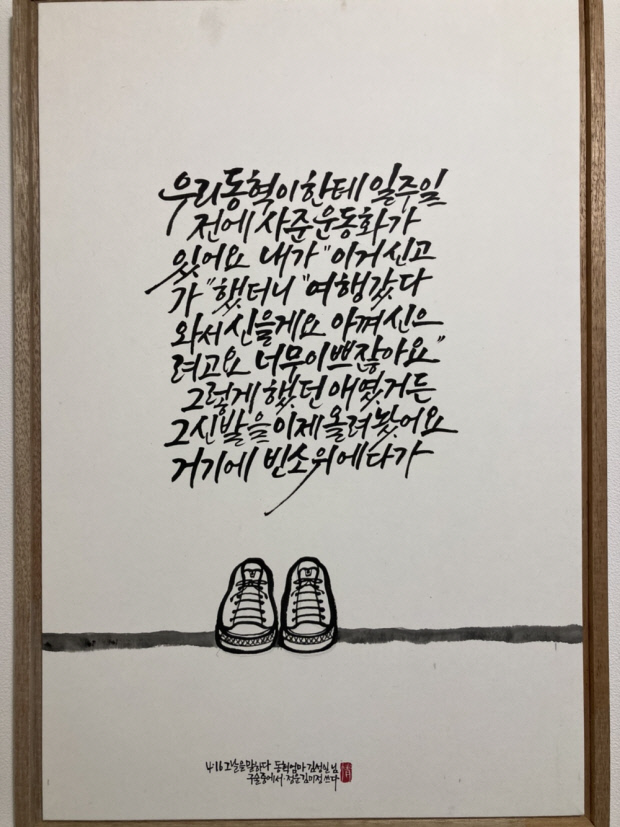 우리동혁이한테 일주일
전에 사준운동화가
있어요 내가 "이거신고
가" 했더니 "여행갔다
와서신을게요 아껴신으
려고요 너무이쁘잖아요"
그렇게 했던 애였거든
그신발을이제올려놨어요
거기에 빈소위에다가
4·16그날을말하다 동혁엄마김성실님
구술중에서·정문김미정쓰다